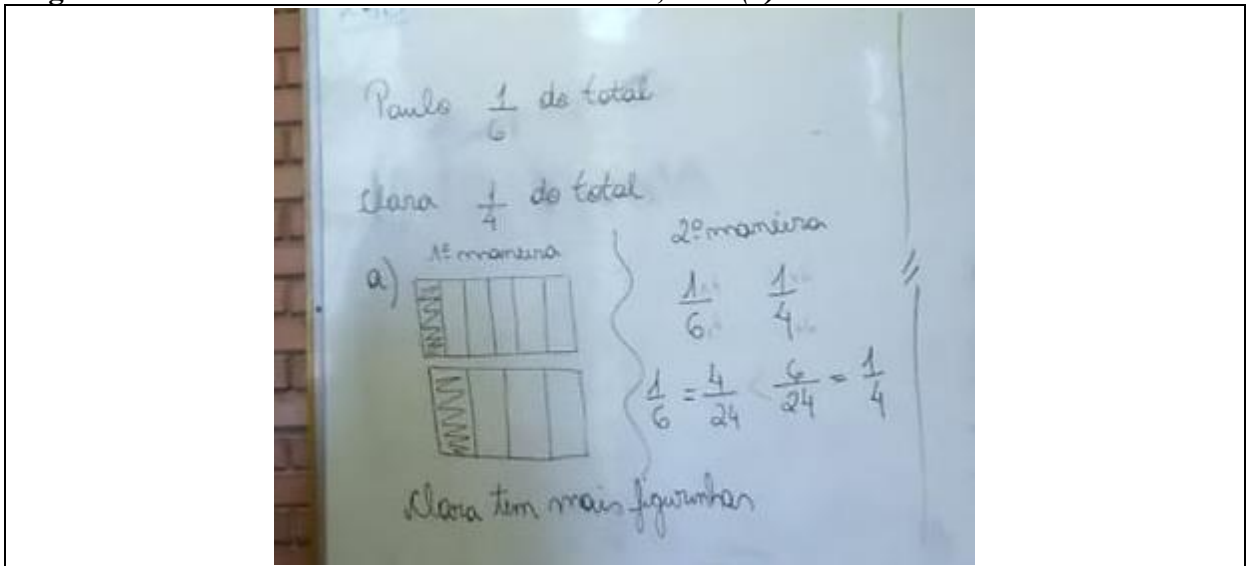 Paulo 1/6 do total
Clara 1/4 do total
a) 1ª maneira
2º maneira
1/6 1/4
1/6 = 4/24 < 6/24 = 1/4
Clara tem mais figurinhas